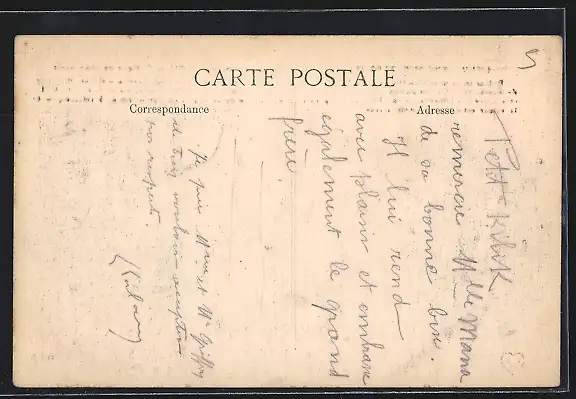 CARTE POSTALE
Correspondance
Adresse
Petit
remercie Mlle Mana
de sa bonne bise.
Il lui rend
avec plaisir et embrasse
également le grand
frère.
Je prie Mme et Mr
de vouloir accepter
mes respects.